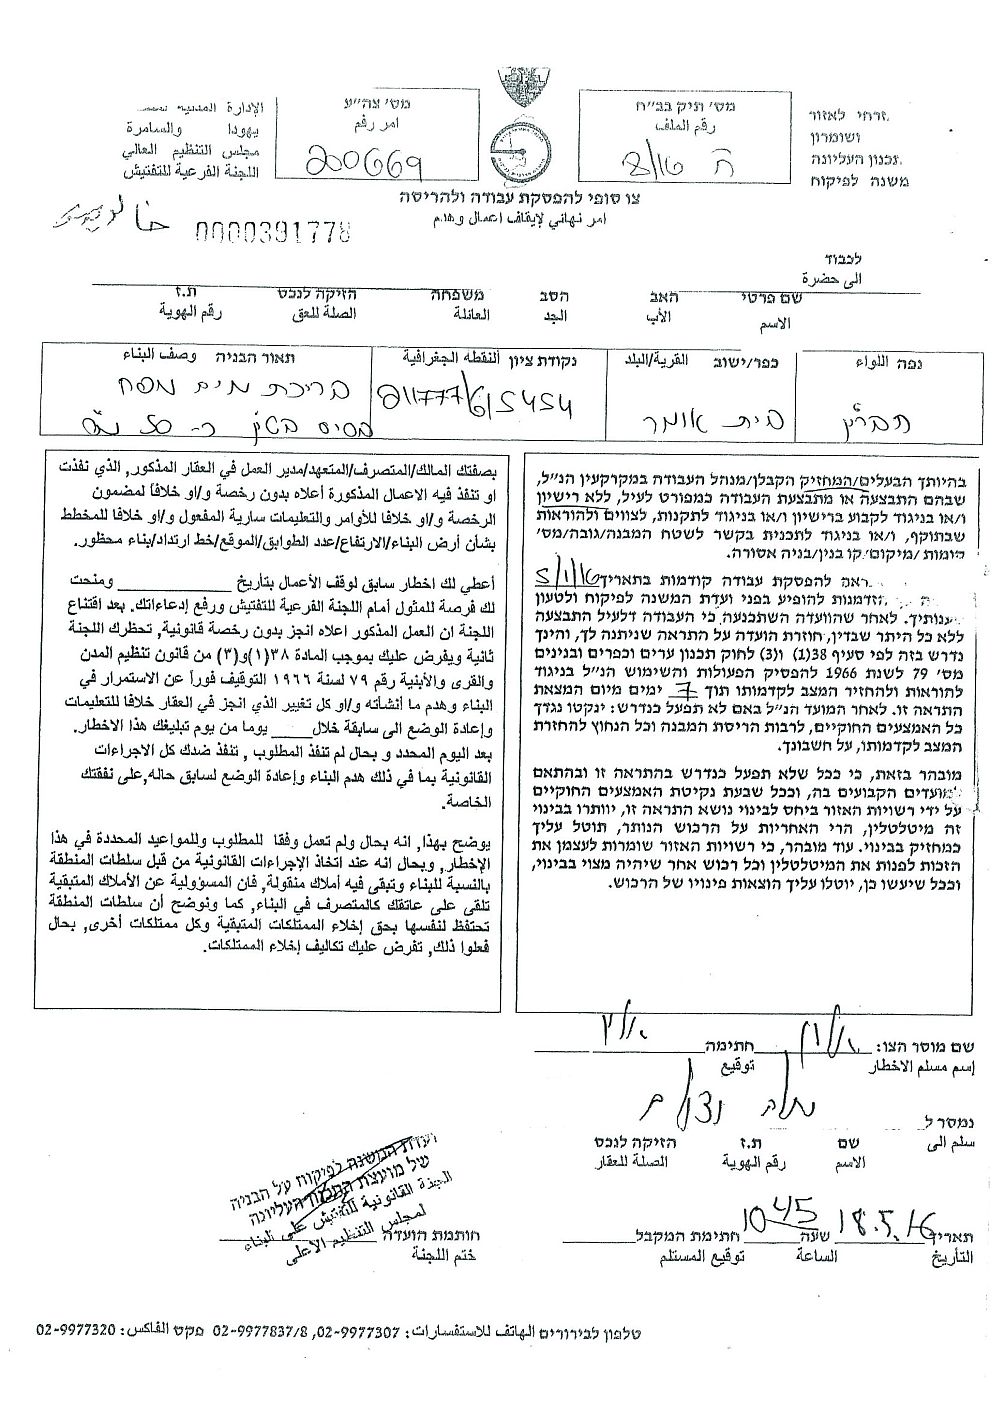 אזרחי לאזור
ושומרון
תכנון העליונה
משנה לפיקוח
מס׳ תיק בב״ח
رقم الملف
ה 8/16
מס׳ צה״ע
امر رقم
200669
الإدارة المدنية
يهودا والسامرة
مجلس التنظيم العالي
اللجنة الفرعية للتفتيش
צו סופי להפסקת עבודה ולהריסה
امر نهائي لإيقاف اعمال وهدم
0000391778
לכבוד
الى حضرة
שם פרטי האב הסב משפחה הזיקה לנכס ת.ז
الاسم الأب الجد العائلة الصلة للعق رقم الهوية
נפה اللواء
חברון
כפר/ישוב القرية/البلد
בית אומר
נקודת ציון النقطه الجغرافية
211777/615454
תאור הבניה وصف البناء
בריכת מים מפח
בסיס בטון כ- 50 מ"ק
בהיותך הבעלים/המחזיק הקבלן/מנהל העבודה במקרקעין הנ״ל,
שבהם התבצעה או מתבצעת העבודה כמפורט לעיל, ללא רישיון
ו/או בניגוד לקבוע ברישיון ו/או בניגוד לתקנות, לצווים ולהוראות
שבתוקף, ו/או בניגוד לתכנית בקשר לשטח המבנה/גובה/מס׳
קומות /מיקום/קו בנין/בניה אסורה.
ראה להפסקת עבודה קודמות בתאריך 5/1/16
הזדמנות להופיע בפני ועדת המשנה לפיקוח ולטעון
טענותיך. לאחר שהוועדה השתכנעה כי העבודה דלעיל התבצעה
ללא כל היתר שבדין, חוזרת הועדה על התראה שניתנה לך, והינך
נדרש בזה לפי סעיף 38(1) ו(3) לחוק תכנון ערים וכפרים ובנינים
מס׳ 79 לשנת 1966 להפסיק הפעולות והשימוש הנ״ל בניגוד
להוראות ולהחזיר המצב לקדמותו תוך 7 ימים מיום המצאת
התראה זו. לאחר המועד הנ״ל באם לא תפעל כנדרש: ינקטו נגדך
כל האמצעים החוקיים, לרבות הריסת המבנה וכל הנחוץ להחזרת
המצב לקדמותו, על חשבונך.
מובהר בזאת, כי ככל שלא תפעל כנדרש בהתראה זו ובהתאם
למועדים הקבועים בה, וככל שבעת נקיטת האמצעים החוקיים
על ידי רשויות האזור ביחס לבינוי נושא התראה זו, יוותרו בבינוי
זה מיטלטלין, הרי האחריות על הרכוש הנותר, תוטל עליך
כמחזיק בבינוי. עוד מובהר, כי רשויות האזור שומרות לעצמן את
הזכות לפנות את המיטלטלין וכל רכוש אחר שיהיה מצוי בבינוי,
וככל שיעשו כן, יוטלו עליך הוצאות פינויו של הרכוש.
بصفتك المالك/المتصرف/المتعهد/مدير العمل في العقار المذكور, الذي نفذت
او تنفذ فيه الاعمال المذكورة أعلاه بدون رخصة و/او خلافا لمضمون
الرخصة و/او خلافا للأوامر والتعليمات سارية المفعول و/او خلافا للمخطط
بشأن أرض البناء/الارتفاع/عدد الطوابق/الموقع/خط ارتداد/بناء محظور.
أعطي لك اخطار سابق لوقف الأعمال بتاريخ ____________ ومنحت
لك فرصة للمثول أمام اللجنة الفرعية للتفتيش ورفع إدعاءاتك. بعد اقتناع
اللجنة ان العمل المذكور اعلاه انجز بدون رخصة قانونية, تحظرك اللجنة
ثانية ويفرض عليك بموجب المادة ٣٨(١)و(٣) من قانون تنظيم المدن
والقرى والأبنية رقم ٧٩ لسنة ١٩٦٦ التوقيف فوراً عن الاستمرار في
البناء وهدم ما أنشأته و/او كل تغيير الذي انجز في العقار خلافا للتعليمات
وإعادة الوضع الى سابقة خلال_____ يوما من يوم تبليغك هذا الاخطار.
بعد اليوم المحدد و بحال لم تنفذ المطلوب , تنفذ ضدك كل الاجراءات
القانونية بما في ذلك هدم البناء وإعادة الوضع لسابق حاله,على نفقتك
الخاصة.
يوضح بهذا, انه بحال ولم تعمل وفقا للمطلوب وللمواعيد المحددة في هذا
الإخطار, وبحال انه عند اتخاذ الإجراءات القانونية من قبل سلطات المنطقة
بالنسبة للبناء وتبقى فيه أملاك منقولة, فان المسؤولية عن الأملاك المتبقية
تلقى على عاتقك كالمتصرف في البناء, كما ونوضح أن سلطات المنطقة
تحتفظ لنفسها بحق إخلاء الممتلكات المتبقية وكل ممتلكات أخرى, بحال
فعلوا ذلك, تفرض عليك تكاليف إخلاء الممتلكات.
שם מוסר הצו: אלון חתימה
إسم مسلم الاخطار توقيع
נמסר ל
سلم الى
שם ת.ז הזיקה לנכס
الاسم رقم الهوية الصلة للعقار
ועדת המשנה לפיקוח על הבניה
של מועצת התכנון העליונה
اللجنة القانونية للتفتيش على البناء
لمجلس التنظيم الاعلى
תאריך 18.5.16 שעה 10 45 חתימת המקבל חותמת הועדה
التأريخ الساعة توقيع المستلم ختم اللجنة
טלפון לבירורים الهاتف للاستفسارات: 02-9977307, 02-9977837/8 פקס الفاكس: 02-9977320